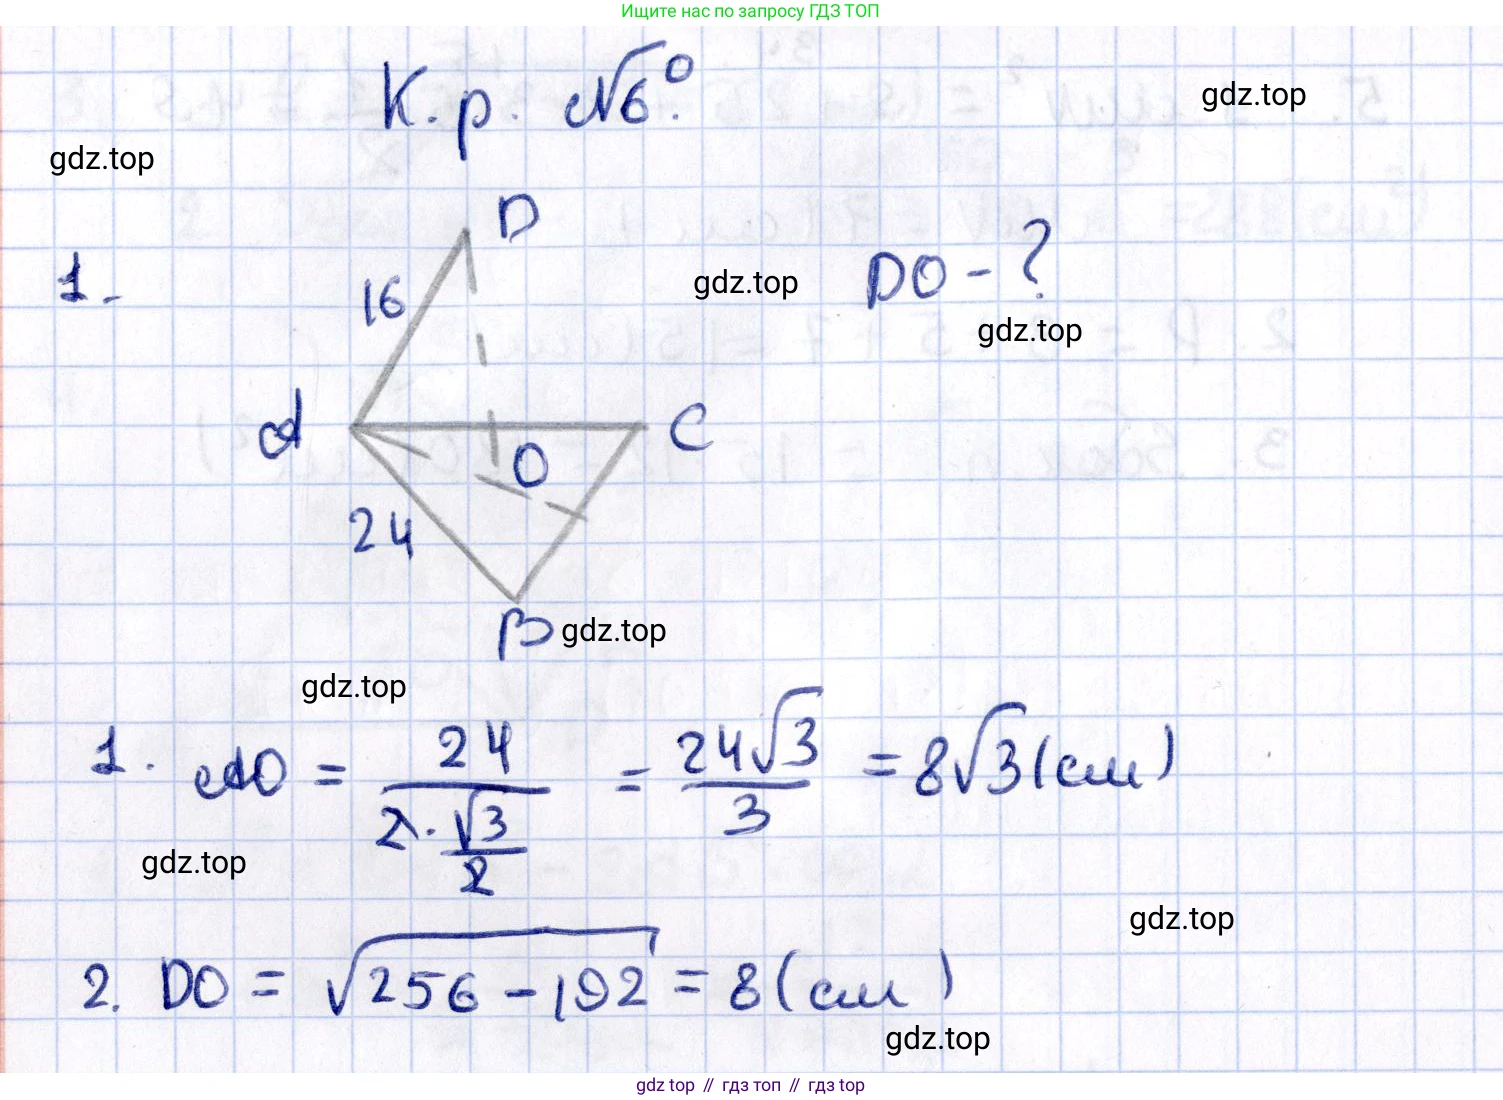 Ищите нас по запросу ГДЗ ТОП
К.р. №6.
gdz.top
gdz.top
D
1.
16
gdz.top
DO - ?
gdz.top
A
C
O
24
B
gdz.top
gdz.top
1. AO = 24 / (2 · √3/2) = 24√3 / 3 = 8√3 (см)
gdz.top
gdz.top
2. DO = √(256 - 192) = 8 (см)
gdz.top
gdz top // гдз топ // гдз top